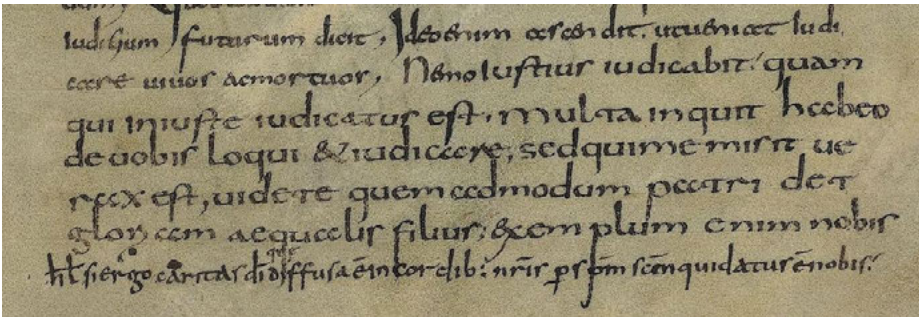 iudicium futurum dicit, Ideo enim ascendit. ut ueniat Iudi
care uiuos ac mortuos, Nemo Iustius iudicabit. quam
qui iniuste iudicatus est. Multa inquit habeo
de uobis loqui & iudicare, sed qui me misit ue
rax est, uidete quemadmodum patri det
gloriam aequalis filius, exemplum enim nobis
hł si ergo caritas dī diffusa ē in cordib: nr̄is ꝑ sp̄m sc̄m qui datus ē nobis.